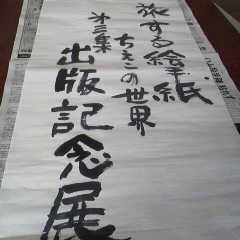 旅する絵手紙
ちきこの世界
第三集
出版記念展